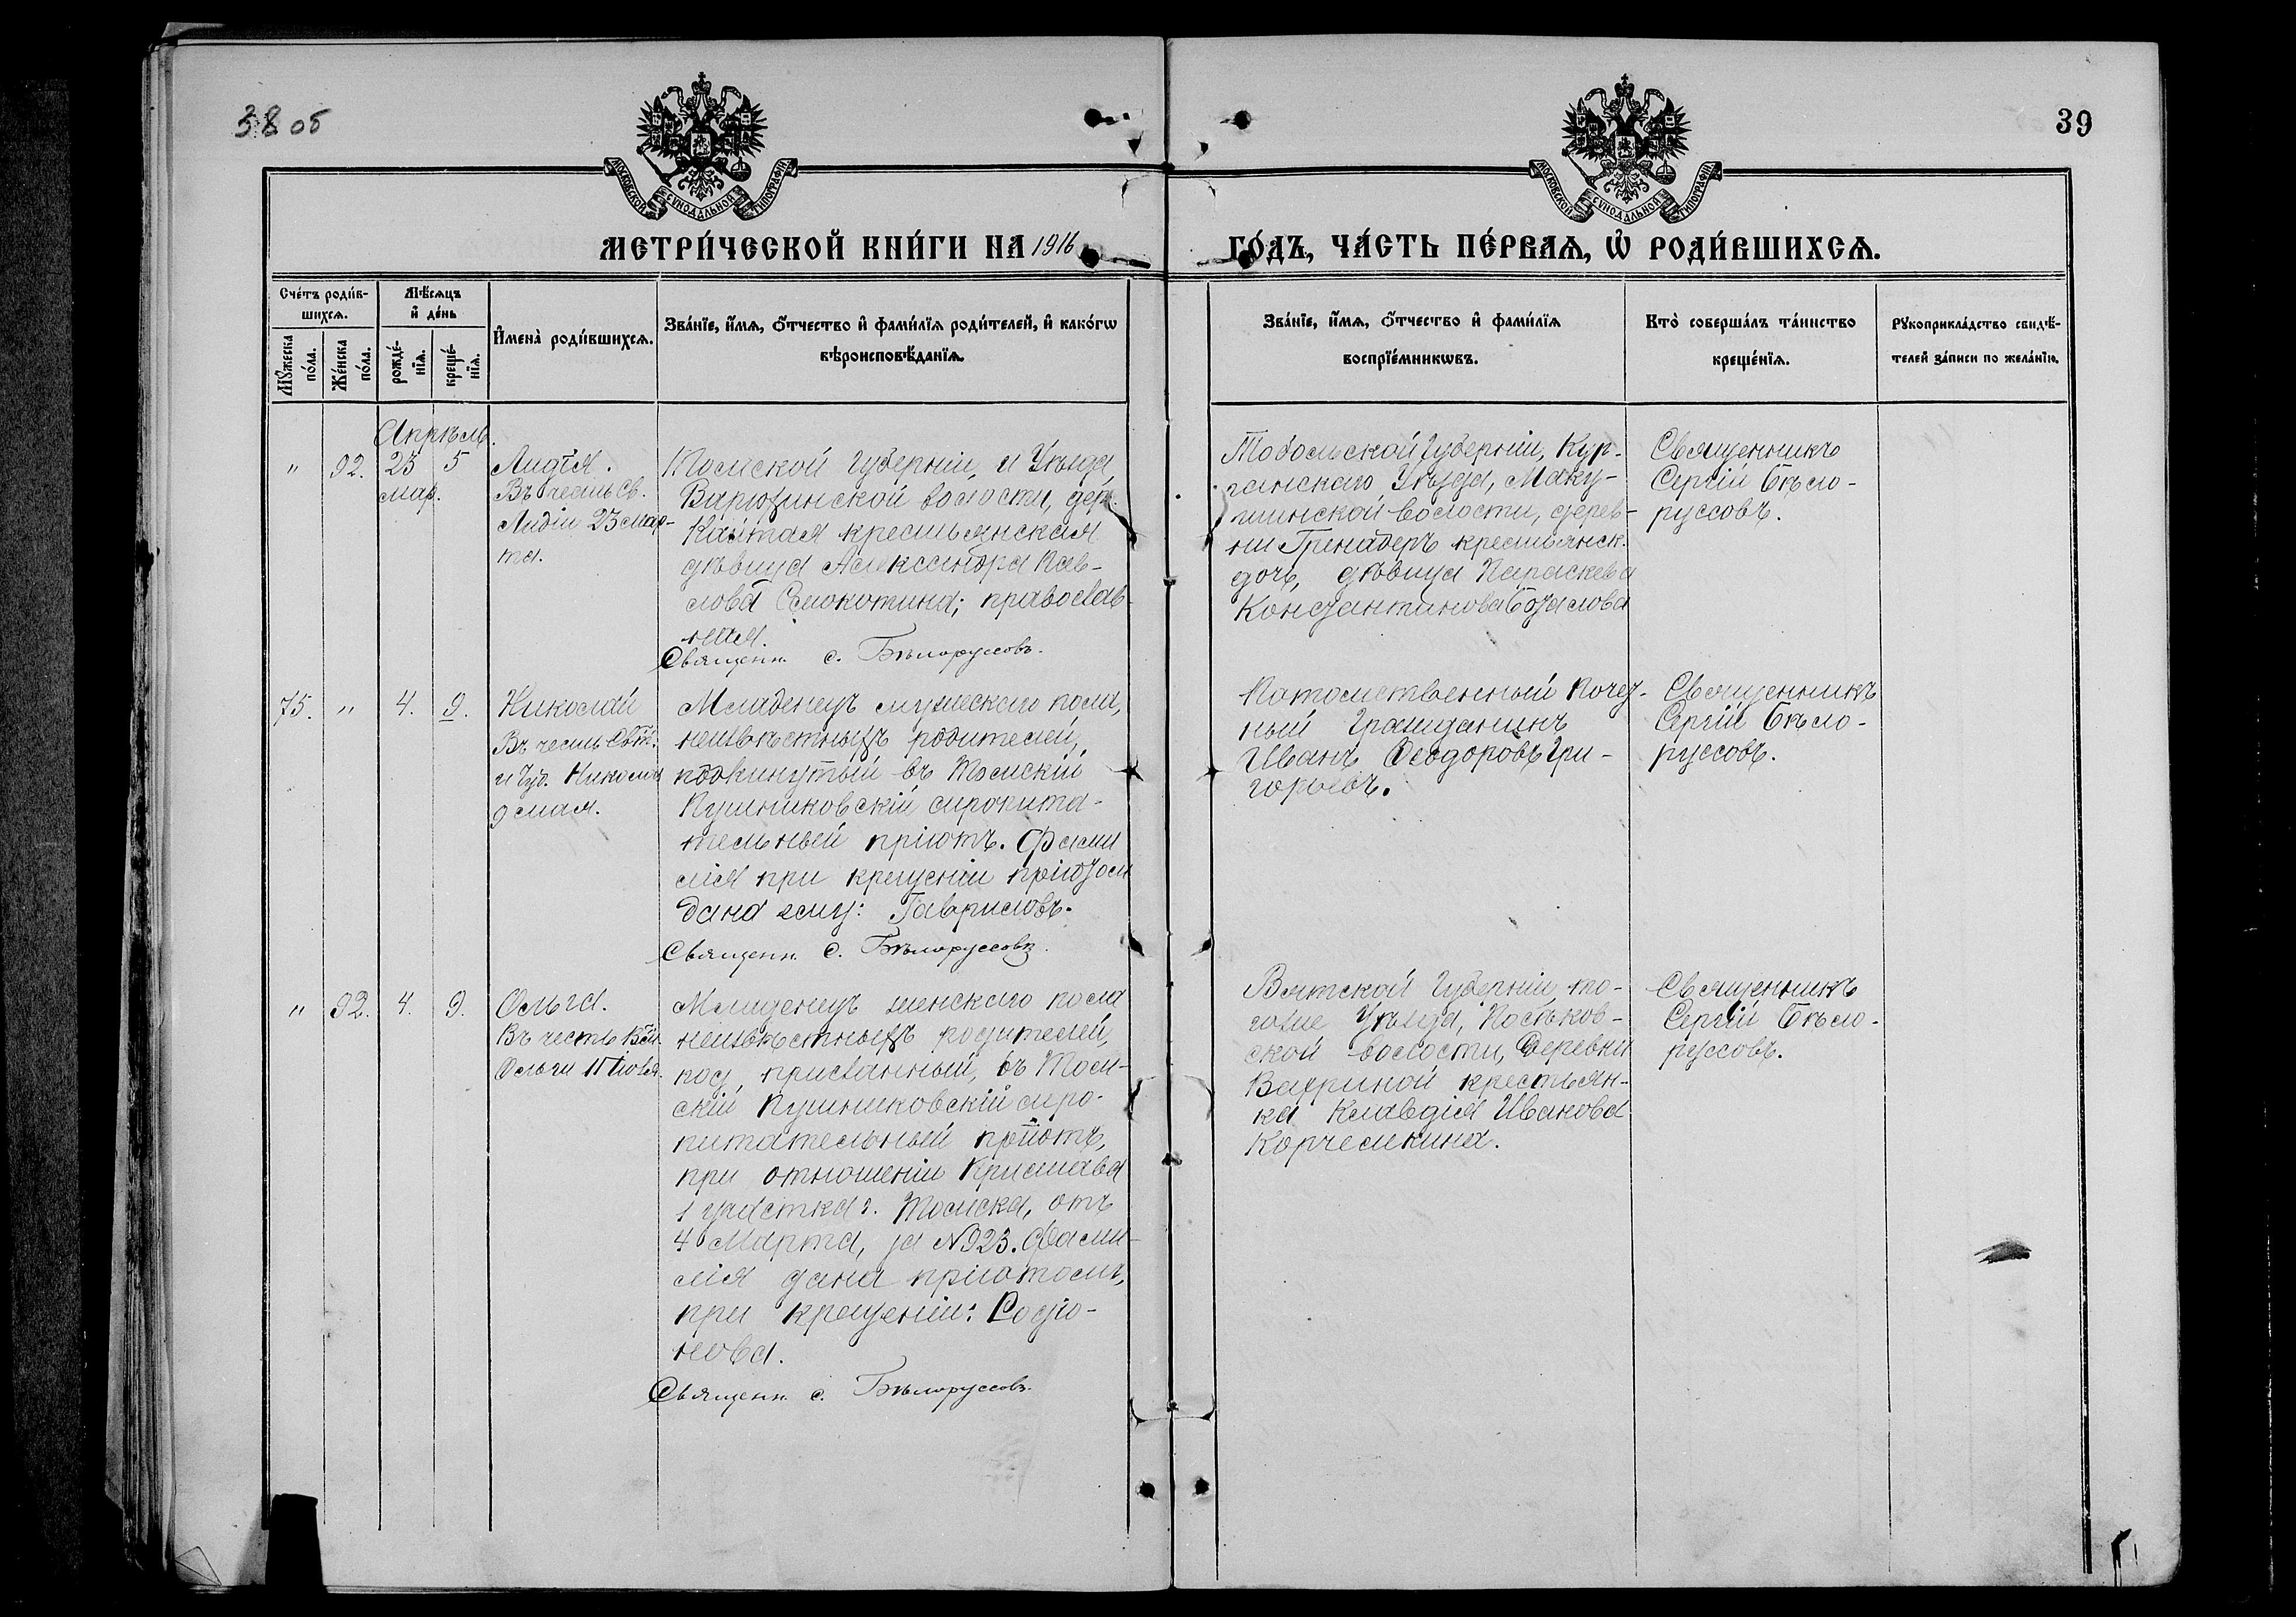 38 об
39
МОСКОВСКОЙ СѴНОДАЛЬНОЙ ТИПОГРАФІИ
МОСКОВСКОЙ СѴНОДАЛЬНОЙ ТИПОГРАФІИ
МЕТРИ́ЧЕСКОЙ КНИ́ГИ НА 1916
ГО́ДЪ, ЧА́СТЬ ПЕ́РВАѦ, Ѡ҆ РОДИ́ВШИХСѦ.
Сче́тъ роди́в-
шихсѧ.
Мꙋ́жеска
по́ла.
Же́нска
по́ла.
Мѣ́сѧцъ
и҆ де́нь
рожде́-
нїѧ.
креще́-
нїѧ.
И҆мена̀ роди́вшихсѧ.
Зва́нїе, и҆́мѧ, ѻ҆́тчество и҆ фами́лїѧ роди́телей, и҆ како́гѡ
вѣроисповѣ́данїѧ.
Зва́нїе, и҆́мѧ, ѻ҆́тчество и҆ фами́лїѧ
воспрїе́мникѡвъ.
Кто̀ соверша́лъ та́инство
креще́нїѧ.
Рꙋкоприкла́дство свидѣ́-
телей за́писи по жела́нїю.
Апрѣль.
" 92. 23 5
мар.
Лидія.
Въ честь св.
Лидіи 23 мар-
та.
Томской губерніи и уѣзда,
Варюхинской волости, дер.
Каитая крестьянская
дѣвица Александра Пав-
лова Смокотина; православ-
ная.
Священн. С. Бѣлоруссовъ.
Тобольской губерніи, Кур-
ганскаго уѣзда, Маку-
шинской волости, дерев-
ни Гренадеръ крестьянск.
дочь, дѣвица Параскева
Константинова
Священникъ
Сергій Бѣло-
руссовъ.
75. " 4. 9.
Николай
Въ честь Свт.
и Чуд. Николая
9 мая.
Младенецъ мужескаго пола,
неизвѣстныхъ родителей,
подкинутый въ Томскій
Пушниковскій сиропита-
тельный пріютъ. Фами
лія при крещеніи пріютом
дана ему: Гавриловъ.
Священн. С. Бѣлоруссовъ.
Потомственный почет-
ный гражданинъ
Иванъ Ѳеодоровъ Гри-
горьевъ.
Священникъ
Сергій Бѣло-
руссовъ.
" 92. 4. 9.
Ольга.
Въ честь
Ольги 11 Іюля.
Младенецъ женскаго пола
неизвѣстныхъ родителей,
присланный, въ Том-
скій Пушниковскій сиро-
питательный пріютъ,
при отношеніи Пристава
1 участка г. Томска, отъ
4 Марта, за № 923. Фами-
лія дана пріютомъ,
при крещеніи: Софро-
нова.
Священн. С. Бѣлоруссовъ.
Вятской губерніи, то-
гоже уѣзда,
ской волости, деревни
крестьян-
ка Клавдія Иванова
Корчемкина.
Священникъ
Сергій Бѣло-
руссовъ.